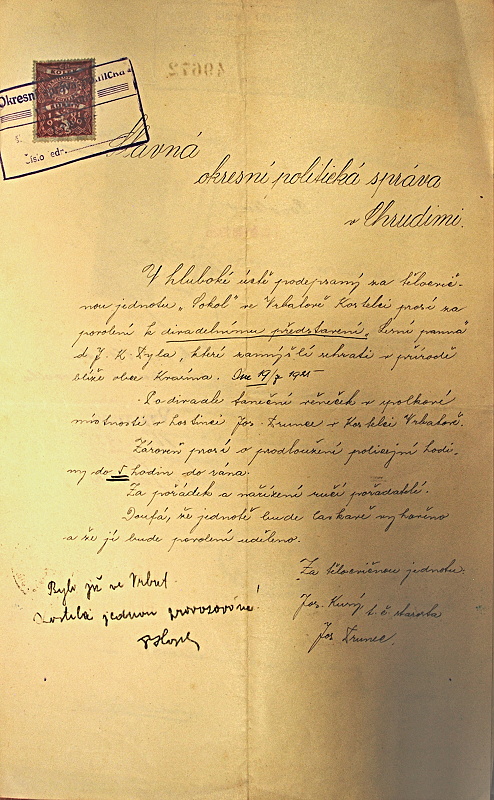 49672
Okresní
Číslo jed.
KOLEK
Slavná
okresní politická správa
v Chrudimi.
V hluboké úctě podepsaný za tělocvič-
nou jednotu „Sokol" ve Vrbatově Kostelci prosí za
povolení k divadelnímu představení „Lesní panna"
d J. K. Tyla, které zamýšlí sehrati v přírodě
blíže obce Krasna. Dne 19/7 1925
Po divadle taneční věneček v spolkové
místnosti v hostinci Jos. Drunec v Kostelci Vrbatově.
Zároveň prosí o prodloužení policejní hodi-
ny do 5 hodin do rána.
Za pořádek a nařízení ručí pořadatelé.
Doufá, že jednotě bude laskavě vyhověno
a že jí bude povolení uděleno.
Za tělocvičnou jednotu:
Jos. Kurý t. č. starosta
Jos. Drunec
Bylo již ve Vrbat
Kostelci jednou provozováno!